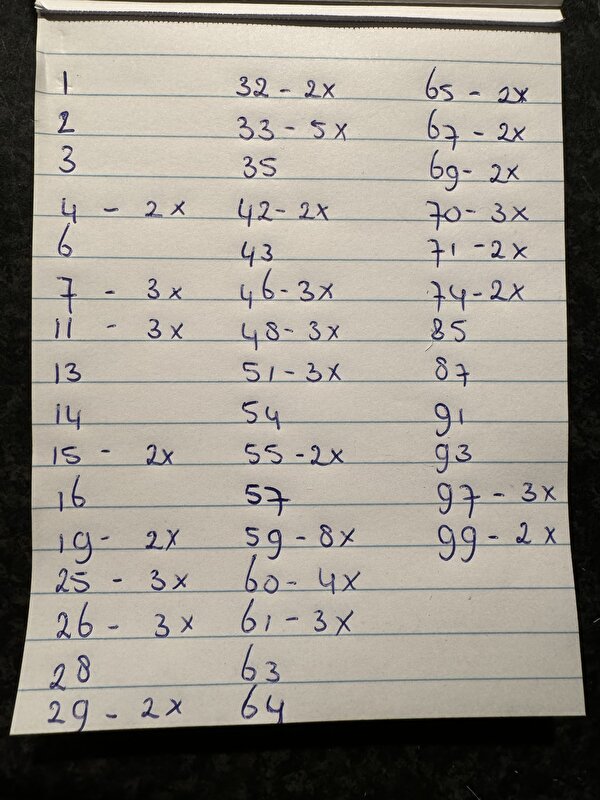 1
2
3
4 - 2x
6
7 - 3x
11 - 3x
13
14
15 - 2x
16
19 - 2x
25 - 3x
26 - 3x
28
29 - 2x
32 - 2x
33 - 5x
35
42 - 2x
43
46 - 3x
48 - 3x
51 - 3x
54
55 - 2x
57
59 - 8x
60 - 4x
61 - 3x
63
64
65 - 2x
67 - 2x
69 - 2x
70 - 3x
71 - 2x
74 - 2x
85
87
91
93
97 - 3x
99 - 2x